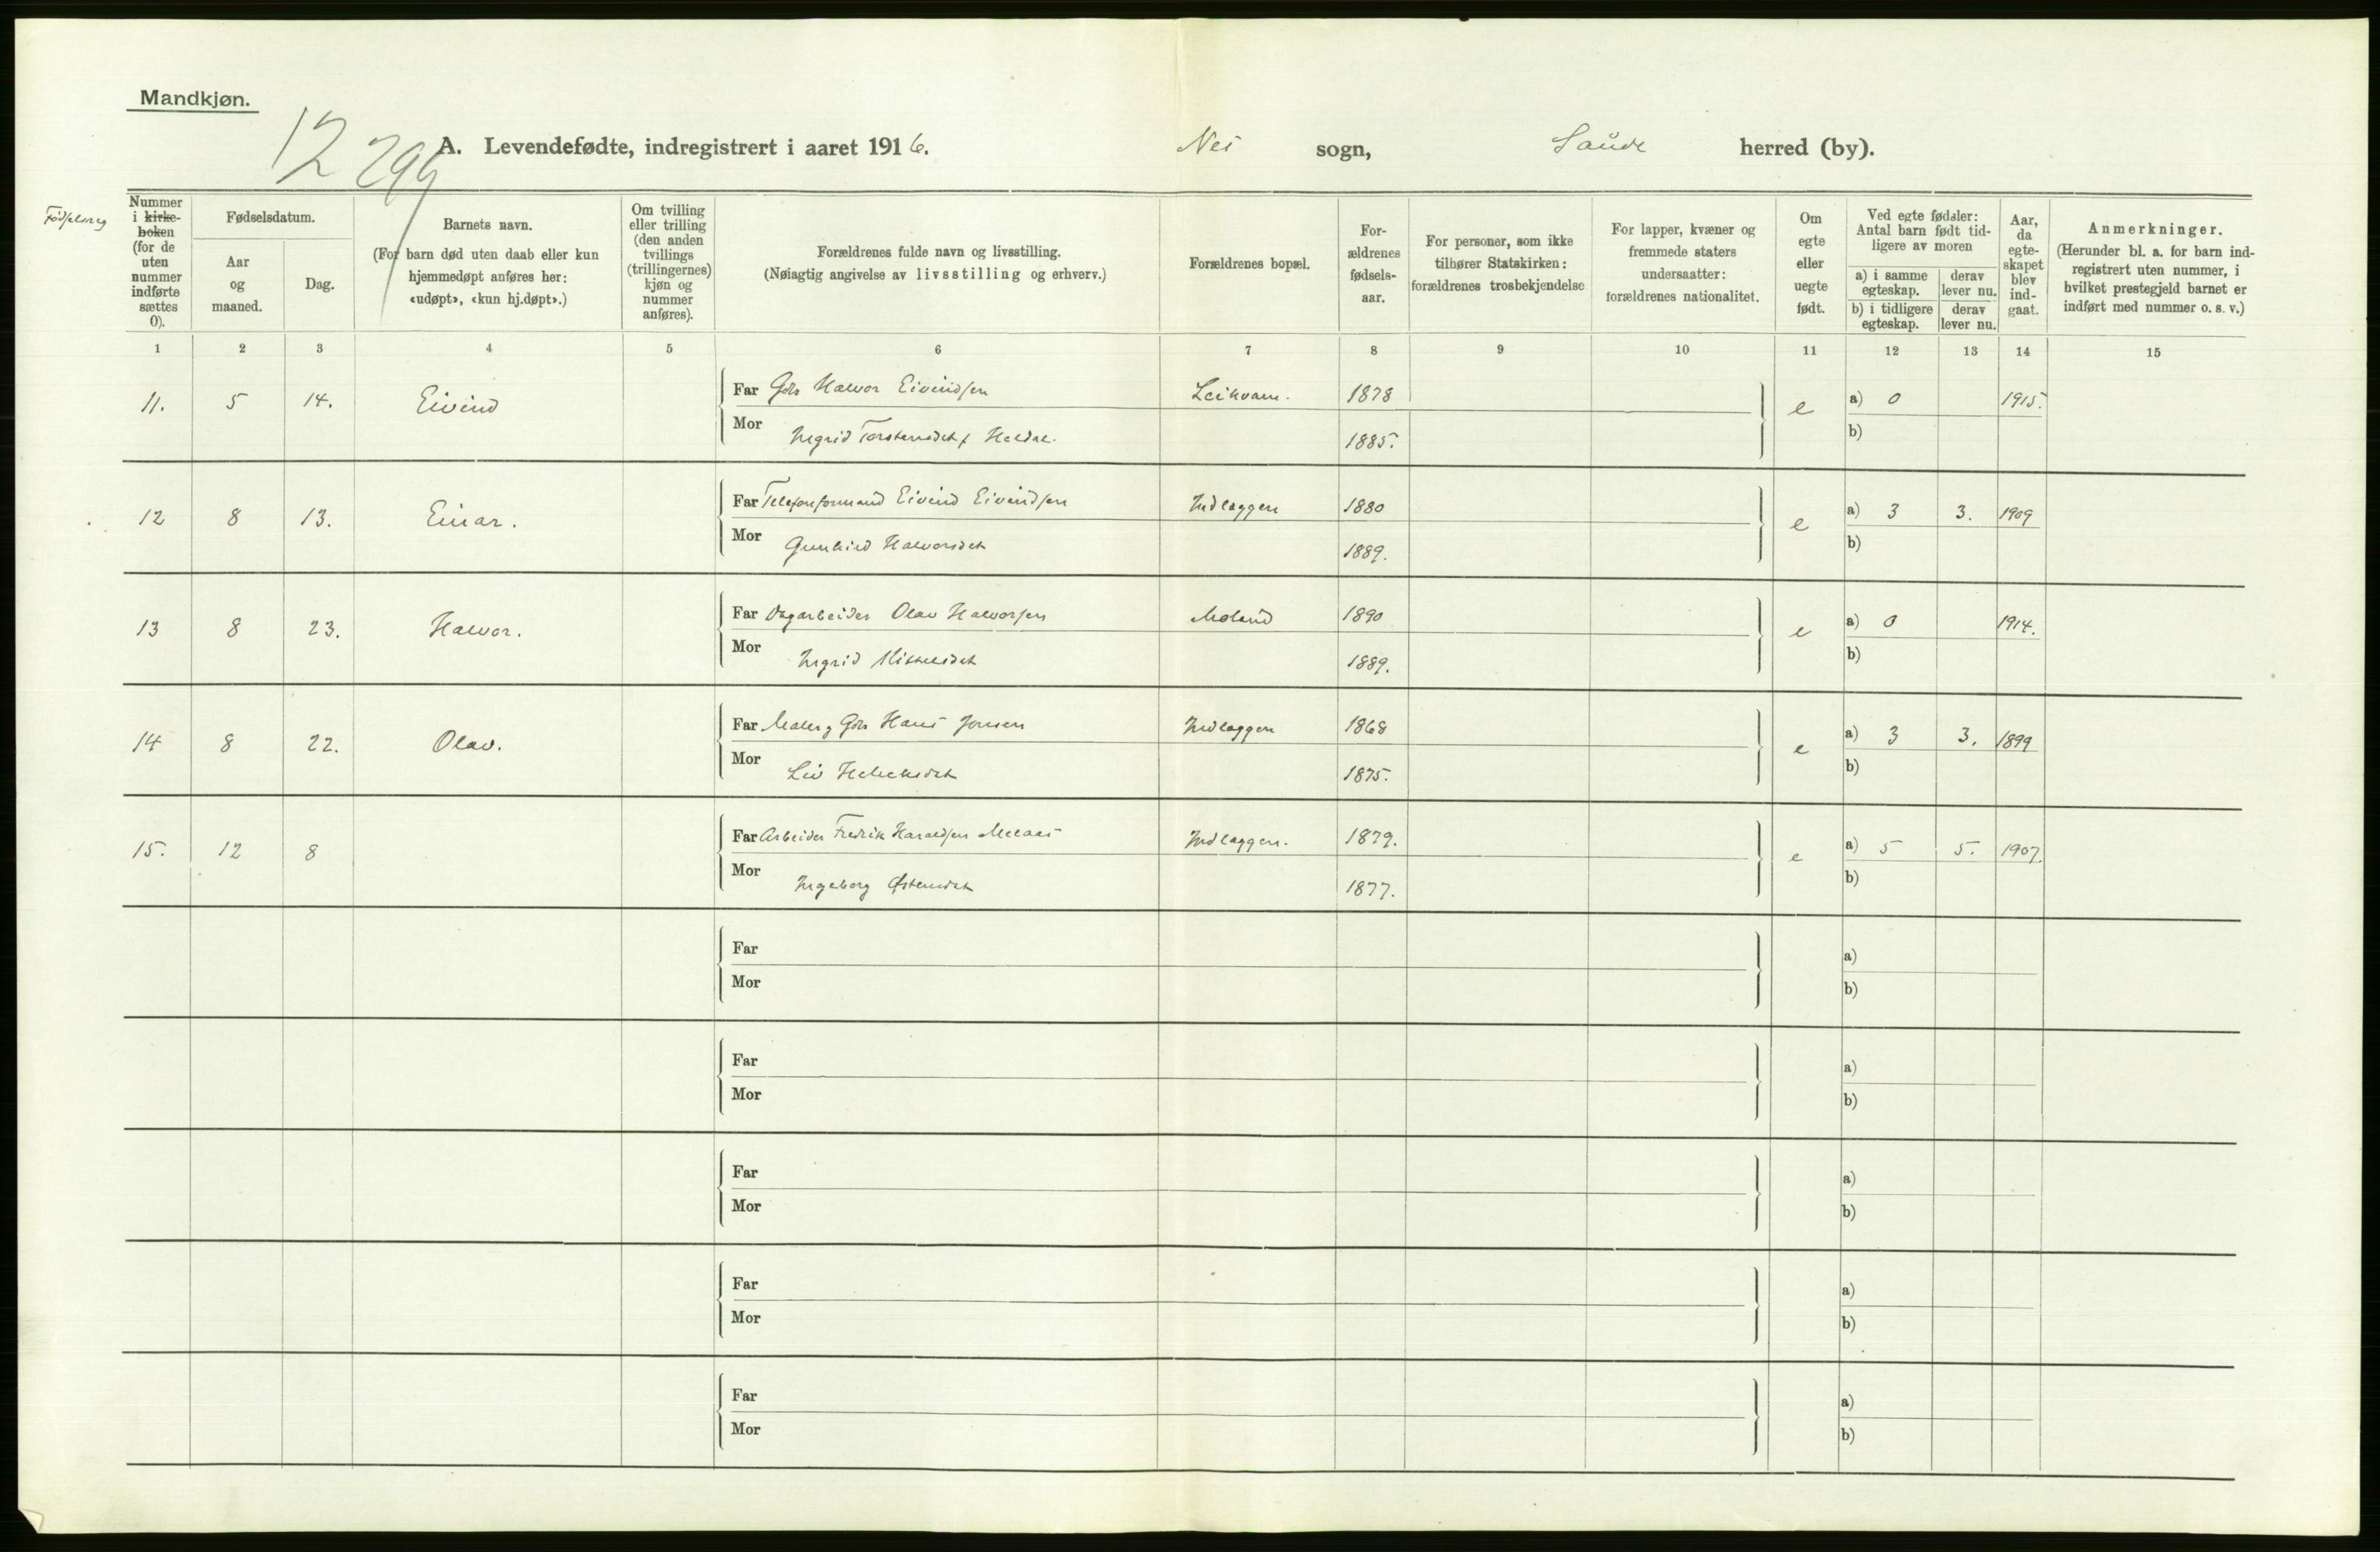 Mandkjøn.
12 299
A. Levendefødte, indregistrert i aaret 1916. Nes sogn, Saude herred (by).
Fødselsreg
Nummer i kirke-boken (for de uten nummer indførte sættes 0).
Fødselsdatum.
Aar og maaned.
Dag.
Barnets navn.
(For barn død uten daab eller kun hjemmedøpt anføres her: «udøpt», «kun hj.døpt».)
Om tvilling eller trilling (den anden tvillings (trillingernes) kjøn og nummer anføres).
Forældrenes fulde navn og livsstilling.
(Nøiagtig angivelse av livsstilling og erhverv.)
Forældrenes bopæl.
For-ældrenes fødsels-aar.
For personer, som ikke tilhører Statskirken: forældrenes trosbekjendelse
For lapper, kvæner og fremmede staters undersaatter: forældrenes nationalitet.
Om egte eller uegte født.
Ved egte fødsler: Antal barn født tid-ligere av moren
a) i samme egteskap.
derav lever nu.
b) i tidligere egteskap.
derav lever nu.
Aar, da egte-skapet blev ind-gaat.
Anmerkninger.
(Herunder bl. a. for barn ind-registrert uten nummer, i hvilket prestegjeld barnet er indført med nummer o. s. v.)
1 2 3 4 5 6 7 8 9 10 11 12 13 14 15
11. 5 14. Eivind Far Gbr Halvor Eivindsen Leikvam. 1878 e a) 0 1915.
Mor Ingrid Torstensdet f Heldal. 1885. b)
12 8 13. Einar. Far Telefonformand Eivind Eivindsen Indlæggen 1880 e a) 3 3. 1909
Mor Gunhild Halvorsdet 1889. b)
13 8 23. Halvor. Far Dagarbeider Olav Halvorsen Moland 1890 e a) 0 1914.
Mor Ingrid Mikkelsdet 1889. b)
14 8 22. Olav. Far Maler, Gbr Hans Jonsen Indlæggen 1868 e a) 3 3. 1899
Mor Liv 1875. b)
15. 12 8 Far Arbeider Fredrik Haraldsen Melaas Indlæggen. 1879. e a) 5 5. 1907.
Mor Ingeborg Østensdet 1877. b)
Far a)
Mor b)
Far a)
Mor b)
Far a)
Mor b)
Far a)
Mor b)
Far a)
Mor b)